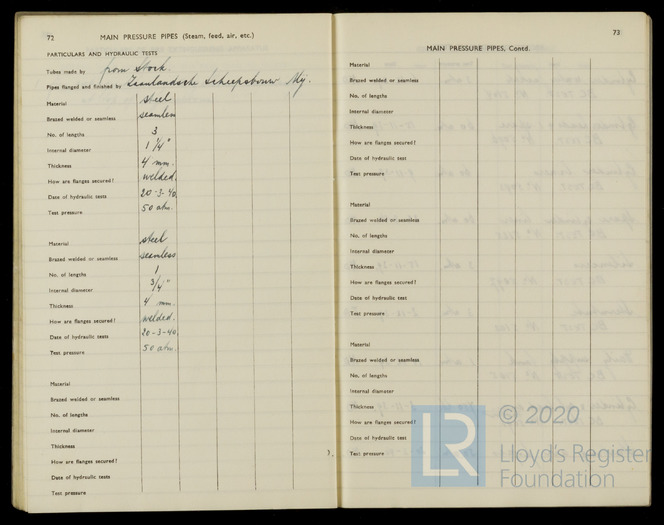 72 MAIN PRESSURE PIPES (Steam, feed, air, etc.)
PARTICULARS AND HYDRAULIC TESTS
Tubes made by from Stock.
Pipes flanged and finished by Zaanlandsche Scheepsbouw Mij.
Material steel
Brazed welded or seamless seamless
No. of lengths 3
Internal diameter 1 1/4"
Thickness 4 mm.
How are flanges secured? welded.
Date of hydraulic tests 20-3-40.
Test pressure 50 atm.
Material steel
Brazed welded or seamless seamless
No. of lengths 1
Internal diameter 3/4"
Thickness 4 mm.
How are flanges secured? welded.
Date of hydraulic tests 20-3-40.
Test pressure 50 atm.
Material
Brazed welded or seamless
No. of lengths
Internal diameter
Thickness
How are flanges secured?
Date of hydraulic tests
Test pressure
73
MAIN PRESSURE PIPES, Contd.
Material
Brazed welded or seamless
No. of lengths
Internal diameter
Thickness
How are flanges secured?
Date of hydraulic test
Test pressure
Material
Brazed welded or seamless
No. of lengths
Internal diameter
Thickness
How are flanges secured?
Date of hydraulic test
Test pressure
Material
Brazed welded or seamless
No. of lengths
Internal diameter
Thickness
How are flanges secured?
Date of hydraulic test
Test pressure
LR © 2020
Lloyd's Register
Foundation